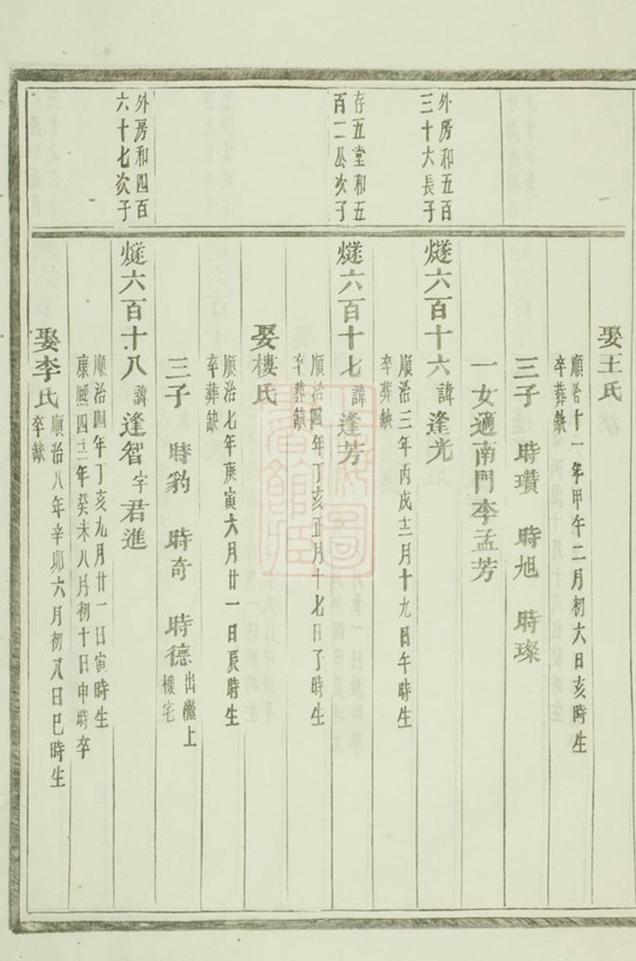 娶王氏
順治十一年甲午二月初六日亥時生
卒葬缺
三子 時瓚 時旭 時璨
一女適南門李孟芳
外房和五百
三十六長子
燧六百十六諱逢光
順治三年丙戌十二月十九日午時生
卒葬缺
存五堂和五
百一公次子
燧六百十七諱逢芳
順治四年丁亥正月十七日子時生
卒葬缺
娶樓氏
順治七年庚寅六月廿一日辰時生
卒葬缺
三子 時豹 時奇 時德出繼上
樓宅
外房和四百
六十七次子
燧六百十八諱逢智字君進
順治四年丁亥九月廿一日寅時生
康熙四十二年癸未八月初十日申時卒
娶李氏
順治八年辛卯六月初八日巳時生
卒缺